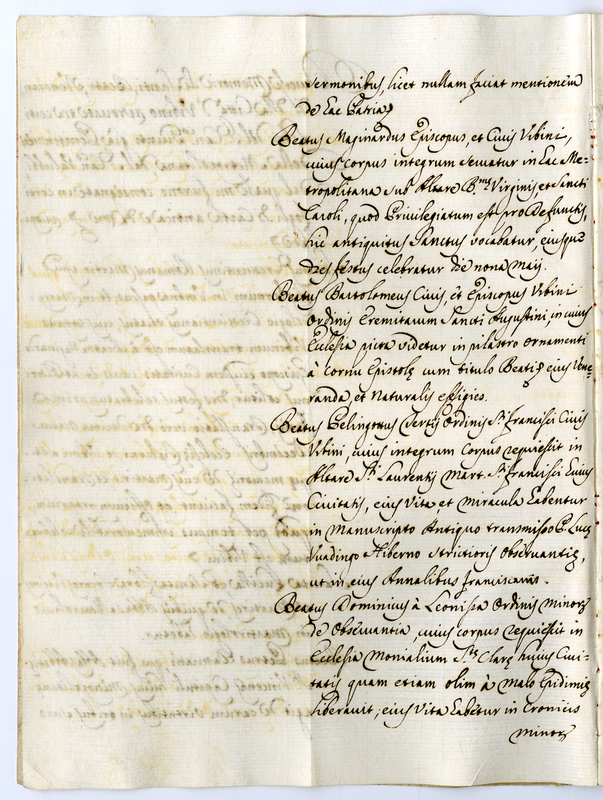 sermonibus, licet nullam faciat mentionem
de hac Patria
Beatus Mainardus Episcopus, et Civis Vrbini,
cuius corpus integrum seruatur in hac Me-
tropolitana sub Altare B.mæ Virginis et Sancti
Caroli, quod Priuilegiatum est pro Defunctis,
hic antiquitus Sanctus vocabatur, eiusque
dies festus celebratur die nona Maij.
Beatus Bartolomeus Ciuis, et Episcopus Vrbini
Ordinis Eremitarum Sancti Augustini, in cuius
Ecclesia picta videtur in pilastro ornamenti
à Cornu Epistolę cum titulo Beati eius Vene-
randa, et naturalis effigies.
Beatus Pelingottus Tertij Ordinis S.ti Francisci Ciuis
Vrbini, cuius integrum Corpus requiescit in
Altare S.ti Laurentij Mart. S.ti Francisci huius
Ciuitatis, eius Vita, et miracula habentur
in Manuscripto Antiquo transmisso P. Lucę
Vuadingo Hiberno strictioris Obseruantię,
ut in eius Annalibus franciscanis.
Beatus Dominicus à Leonissa Ordinis Minorũ
de Obseruantia, cuius corpus requiescit in
Ecclesia Monialium S.tæ Clarę huius Ciui-
tatis quam etiam olim à malo Epidimię
liberauit, eius Vita habetur in Cronicis
Minorũ